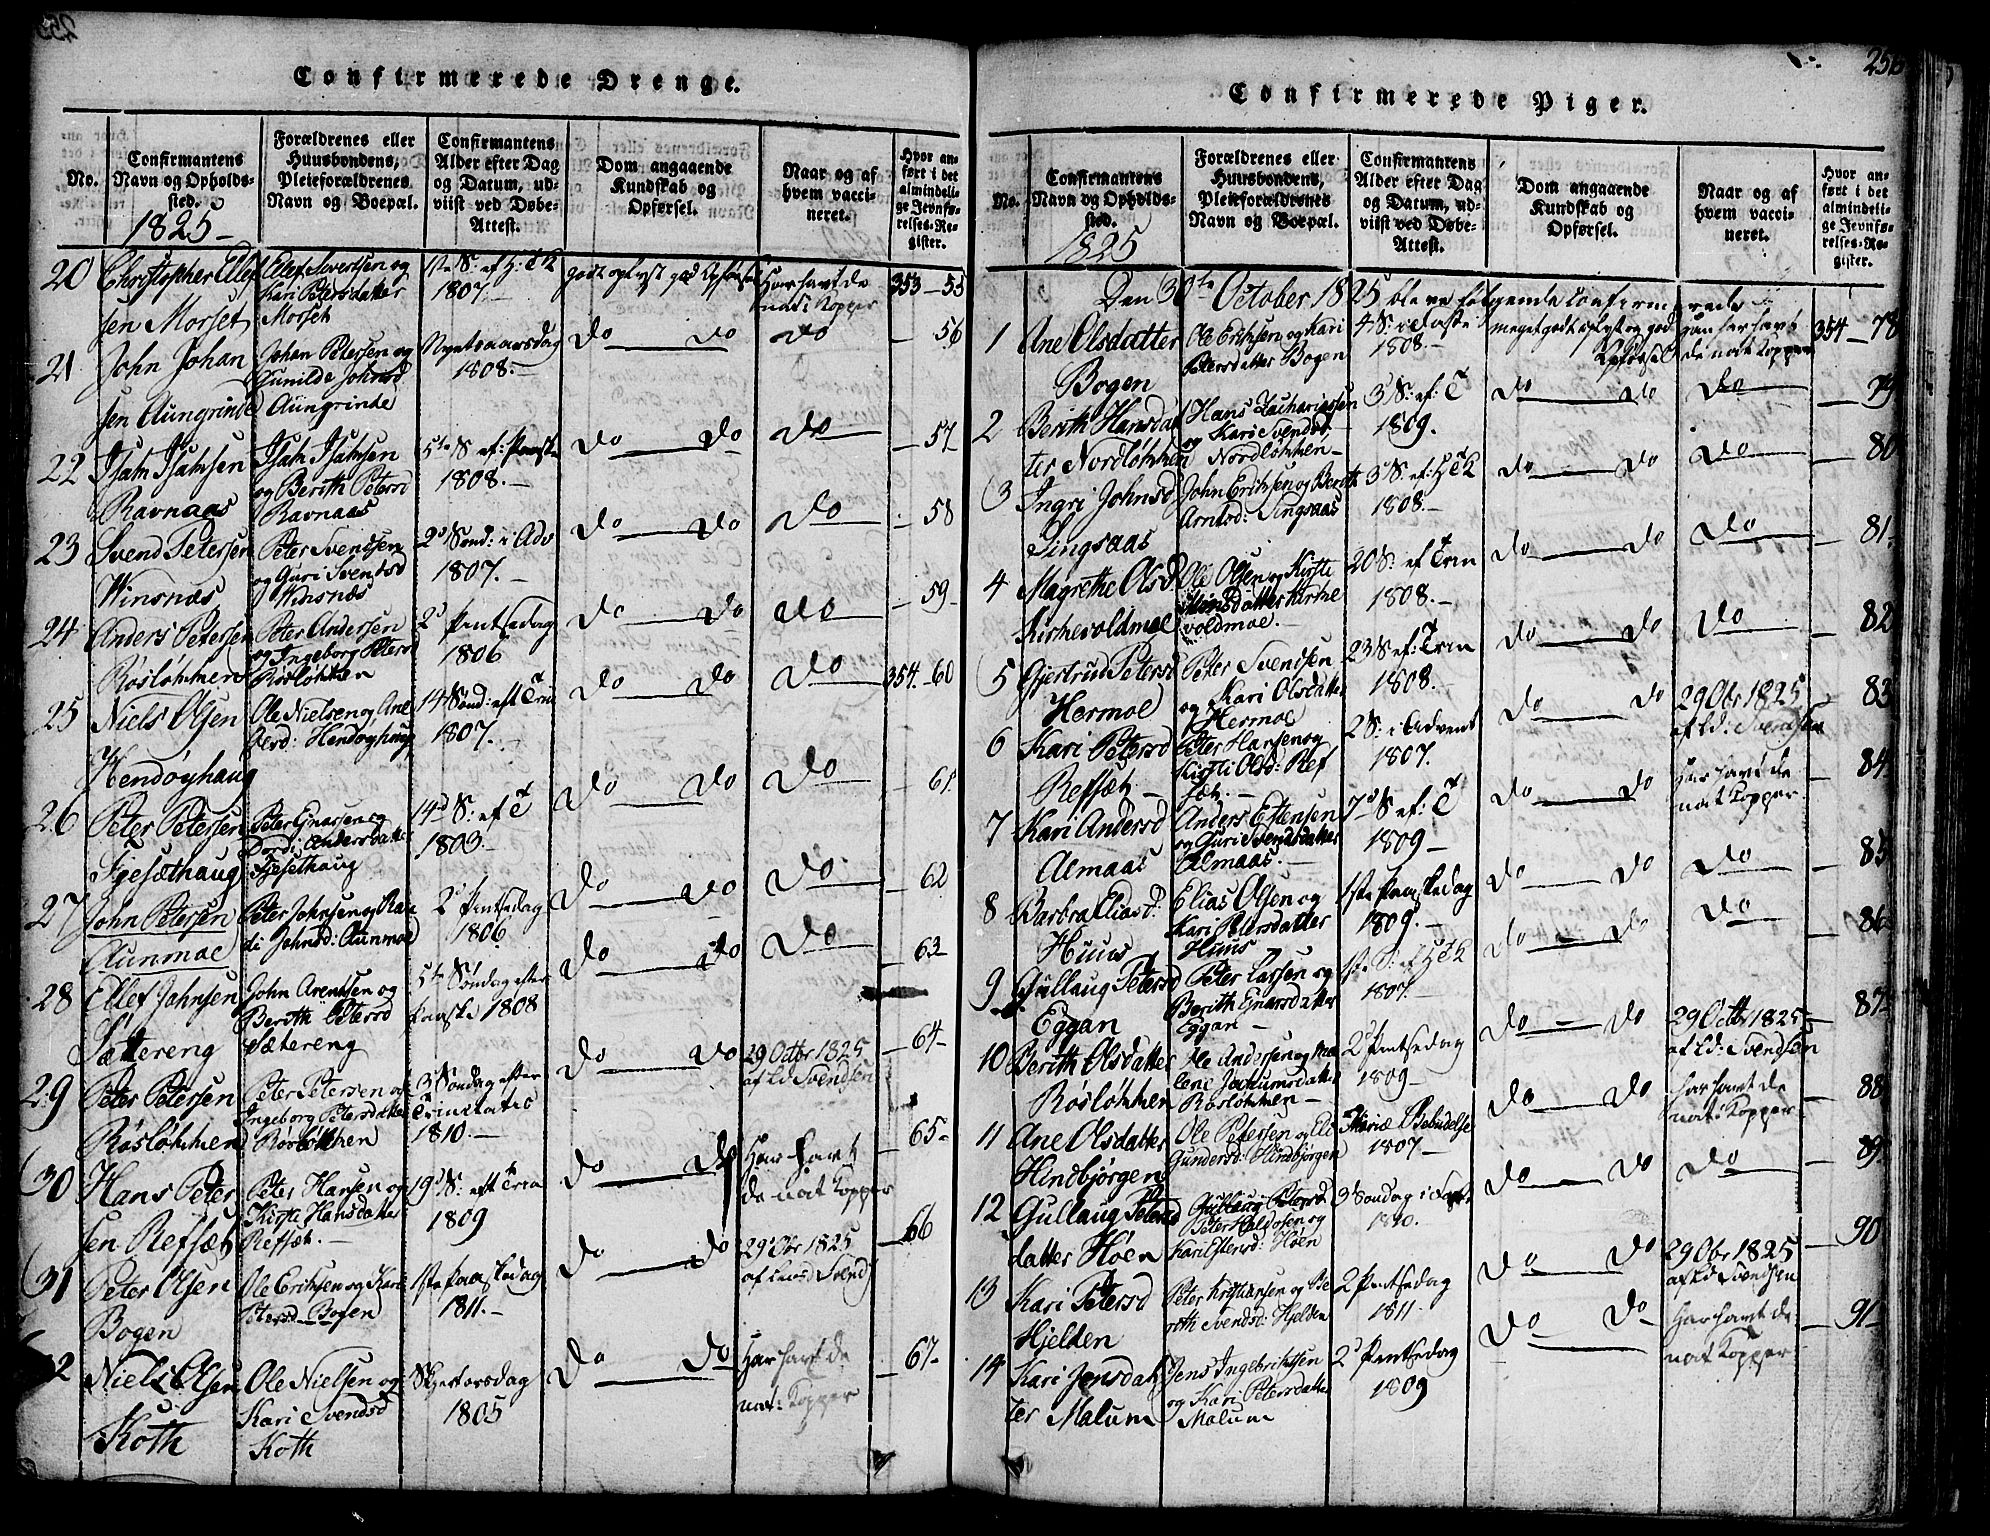 Confirmerede Drenge.
No.
Confirmantens
Navn og Opholds-
sted.
1825-
Forældrenes eller
Huusbondens,
Pleieforældrenes
Navn og Boepæl.
Confirmantens
Alder efter Dag
og Datum, ud-
viist ved Døbe-
Attest.
Dom angaaende
Kundskab og
Opførsel.
Naar og af
hvem vacci-
neret.
Hvor an-
ført i det
almindeli-
ge Jevnfø-
relses-Re-
gister.
20
Christopher Ellef
sen Morset
Ellef Sivertsen og
Kari Petersdatter
Morset
1807.-
353-55
21
John Johan
sen Aungrinde
Johan Petersen og
Gunilde Johnsd
Aungrinde
Nyetaarsdag
1808.-
Do Do
Do
- 56
22
Isak Isaksen
Ravnaas
Isak Isaksen
og Berith Petersd
Ravnaas
5te S: ef: Paaske
1808.-
Do Do
Do
- 57-
23
Svend Petersen
Winsnæs
Peter Svendsen
og Guri Svendsd
Winsnæs
2d Sønd: i Adv
1807.-
Do Do
Do
- 58
24
Anders Petersen
Røsløkken
Peter Andersen
og Ingeborg Petersd
Røsløkken
2d Pintsedag
1806
Do Do
Do
- 59-
25
Niels Olsen
Hendøyhaug
Ole Nielsen og Ane
Hendøyhaug
14 Sønd: eft Trin
1807.
Do Do
Do
354.-60
26
Peter Petersen
Fjesæthaug
Peter Ejnarsen og
Dordi Andersdatte
Fjesethaug
14d S: ef T
1803.-
Do Do
Do
- 61.
27
John Petersen
Aunmoe
Peter Johnsen og Ra
di Johnsd: Aunmoe
2d Pintsedag
1806
Do Do
Do
- 62
28
Ellef Johnsen
Sættereng
John Arentsen og
Berith Petersd
Sætereng
5te Søndag efter
Paaske 1808
Do Do
Do
- 63-
29
Peter Petersen
Røsløkken
Peter Petersen og
Ingeborg Petersdatter
Røsløkken
3d Søndag efter
Trinitatis
1810.-
Do Do
29 Octbr 1825
af Ld Svendsen
- 64-
30
Hans Peter
sen Refsæt
Peter Hansen og
Kirsti Hansdatter
Refsæt.-
19d S: eft Trin
1809
Do Do
Har havt
de nat Kopper
- 65-
31
Peter Olsen
Bogen
Ole Erichsen og Kari
Petersd Bogen
1ste Paaskedag
1811.-
Do Do
29 Obr 1825
- 66
Niels Olsen
Koth
Ole Nielsen og
Kari Svendsd
Koth
Skjertorsdag
1805
Do Do
Har havt de
nat: Kopper
- 67-
Confirmerede Piger.
256
No.
Confirmantens
Navn og Opholds-
sted.
1825
Forældrenes eller
Huusbondens,
Pleieforældrenes
Navn og Boepæl.
Confirmantens
Alder efter Dag
og Datum, ud-
viist ved Døbe-
Attest.
Dom angaaende
Kundskab og
Opførsel.
Naar og af
hvem vacci-
neret.
Hvor an-
ført i det
almindeli-
ge Jevnfø-
relses-Re-
gister.
Den 30te October 1825 bleve følgende Confirmerede
1
Ane Olsdatter
Bogen
Ole Erichsen og Kari
Petersdatter Bogen
4 S: i Faste
1808.-
meget godt oplyst og god
Opførsel
har havt
de nat Kopper
354-78
2
Berith Hansdat
ter Nordløkken
Hans Zachariassen
og Kari Svendsd,
Nordløkken-
3d S: ef: T
1809.
Do Do
Do
- 79
3
Ingri Johnsd
Singsaas
John Erichsen og Berith
Arntsd: Singsaas
3d S: ef: H T K
1808.-
Do Do
Do
- 80
4
Magrethe Olsd
Kirkevoldmoe
Ole Olsen og Kirsti
Kirke
voldmoe.-
20 S: ef Trin
1808.-
Do Do
Do
- 81.
5
Gjertrud Petersd
Hermoe
Peter Svendsen
og Kari Olsdatter
Hermoe
23 S ef: Trin
1808.-
Do Do
Do
- 82
6
Kari Petersd
Refsæt.-
Peter Hansen og
Kirsti Olsd: Ref
sæt.-
2 S: i Advent
1807.
Do Do
29 Obr 1825
af Ld: Svendsen
- 83
7
Kari Andersd
Almaas
Anders Estensen
og Guri Svendsdatter
Almaas.-
7d S ef: T
1809-
Do Do
Har havt de
nat Kopper
- 84
8
Barbra Eliasd:
Huus
Elias Olsen og
Kari Petersdatter
Huus
1ste Paaskedag
1809.-
Do Do
Do
- 85
9
Gullaug Petersd
Eggan
Peter Larsen og
Berith Ejnarsdatter
Eggan-
1ste S: ef H T K
1807.-
Do - Do
Do
- 86
10
Berith Olsdatter
Røsløkken
Ole Andersen og Ma
lene Jochumsdatter
Røsløkken-
2d Pintsedag
1809-
Do - Do
29 Octbr 1825
af Ld: Svendsen
- 87
11
Ane Olsdatter
Hindbjørgen
Ole Petersen og
Gundersd: Hindbjørgen
Mariæ Bebudelse
1807
Do Do
har havt de
nat: Kopper
- 88
12
Gullaug Peters
datter Høen
Peter Haldosen og
Kari Estensd: Høen
3 Søndag i Faste
1810.
Do Do
Do
- 89
13
Kari Petersd
Hjelden
Peter Kristiansen og Be
rith Svendsd: Hjelden
2 Pintsedag
1811.
Do Do
29 Obr 1825
af Ld Svendsen
- 90
14
Kari Jensdat
ter Malum
Jens Ingebrigtsen
og Kari Petersdatter
Malum
2d Pintsedag
1809
Do Do
Har havt de
nat Kopper
- 91-